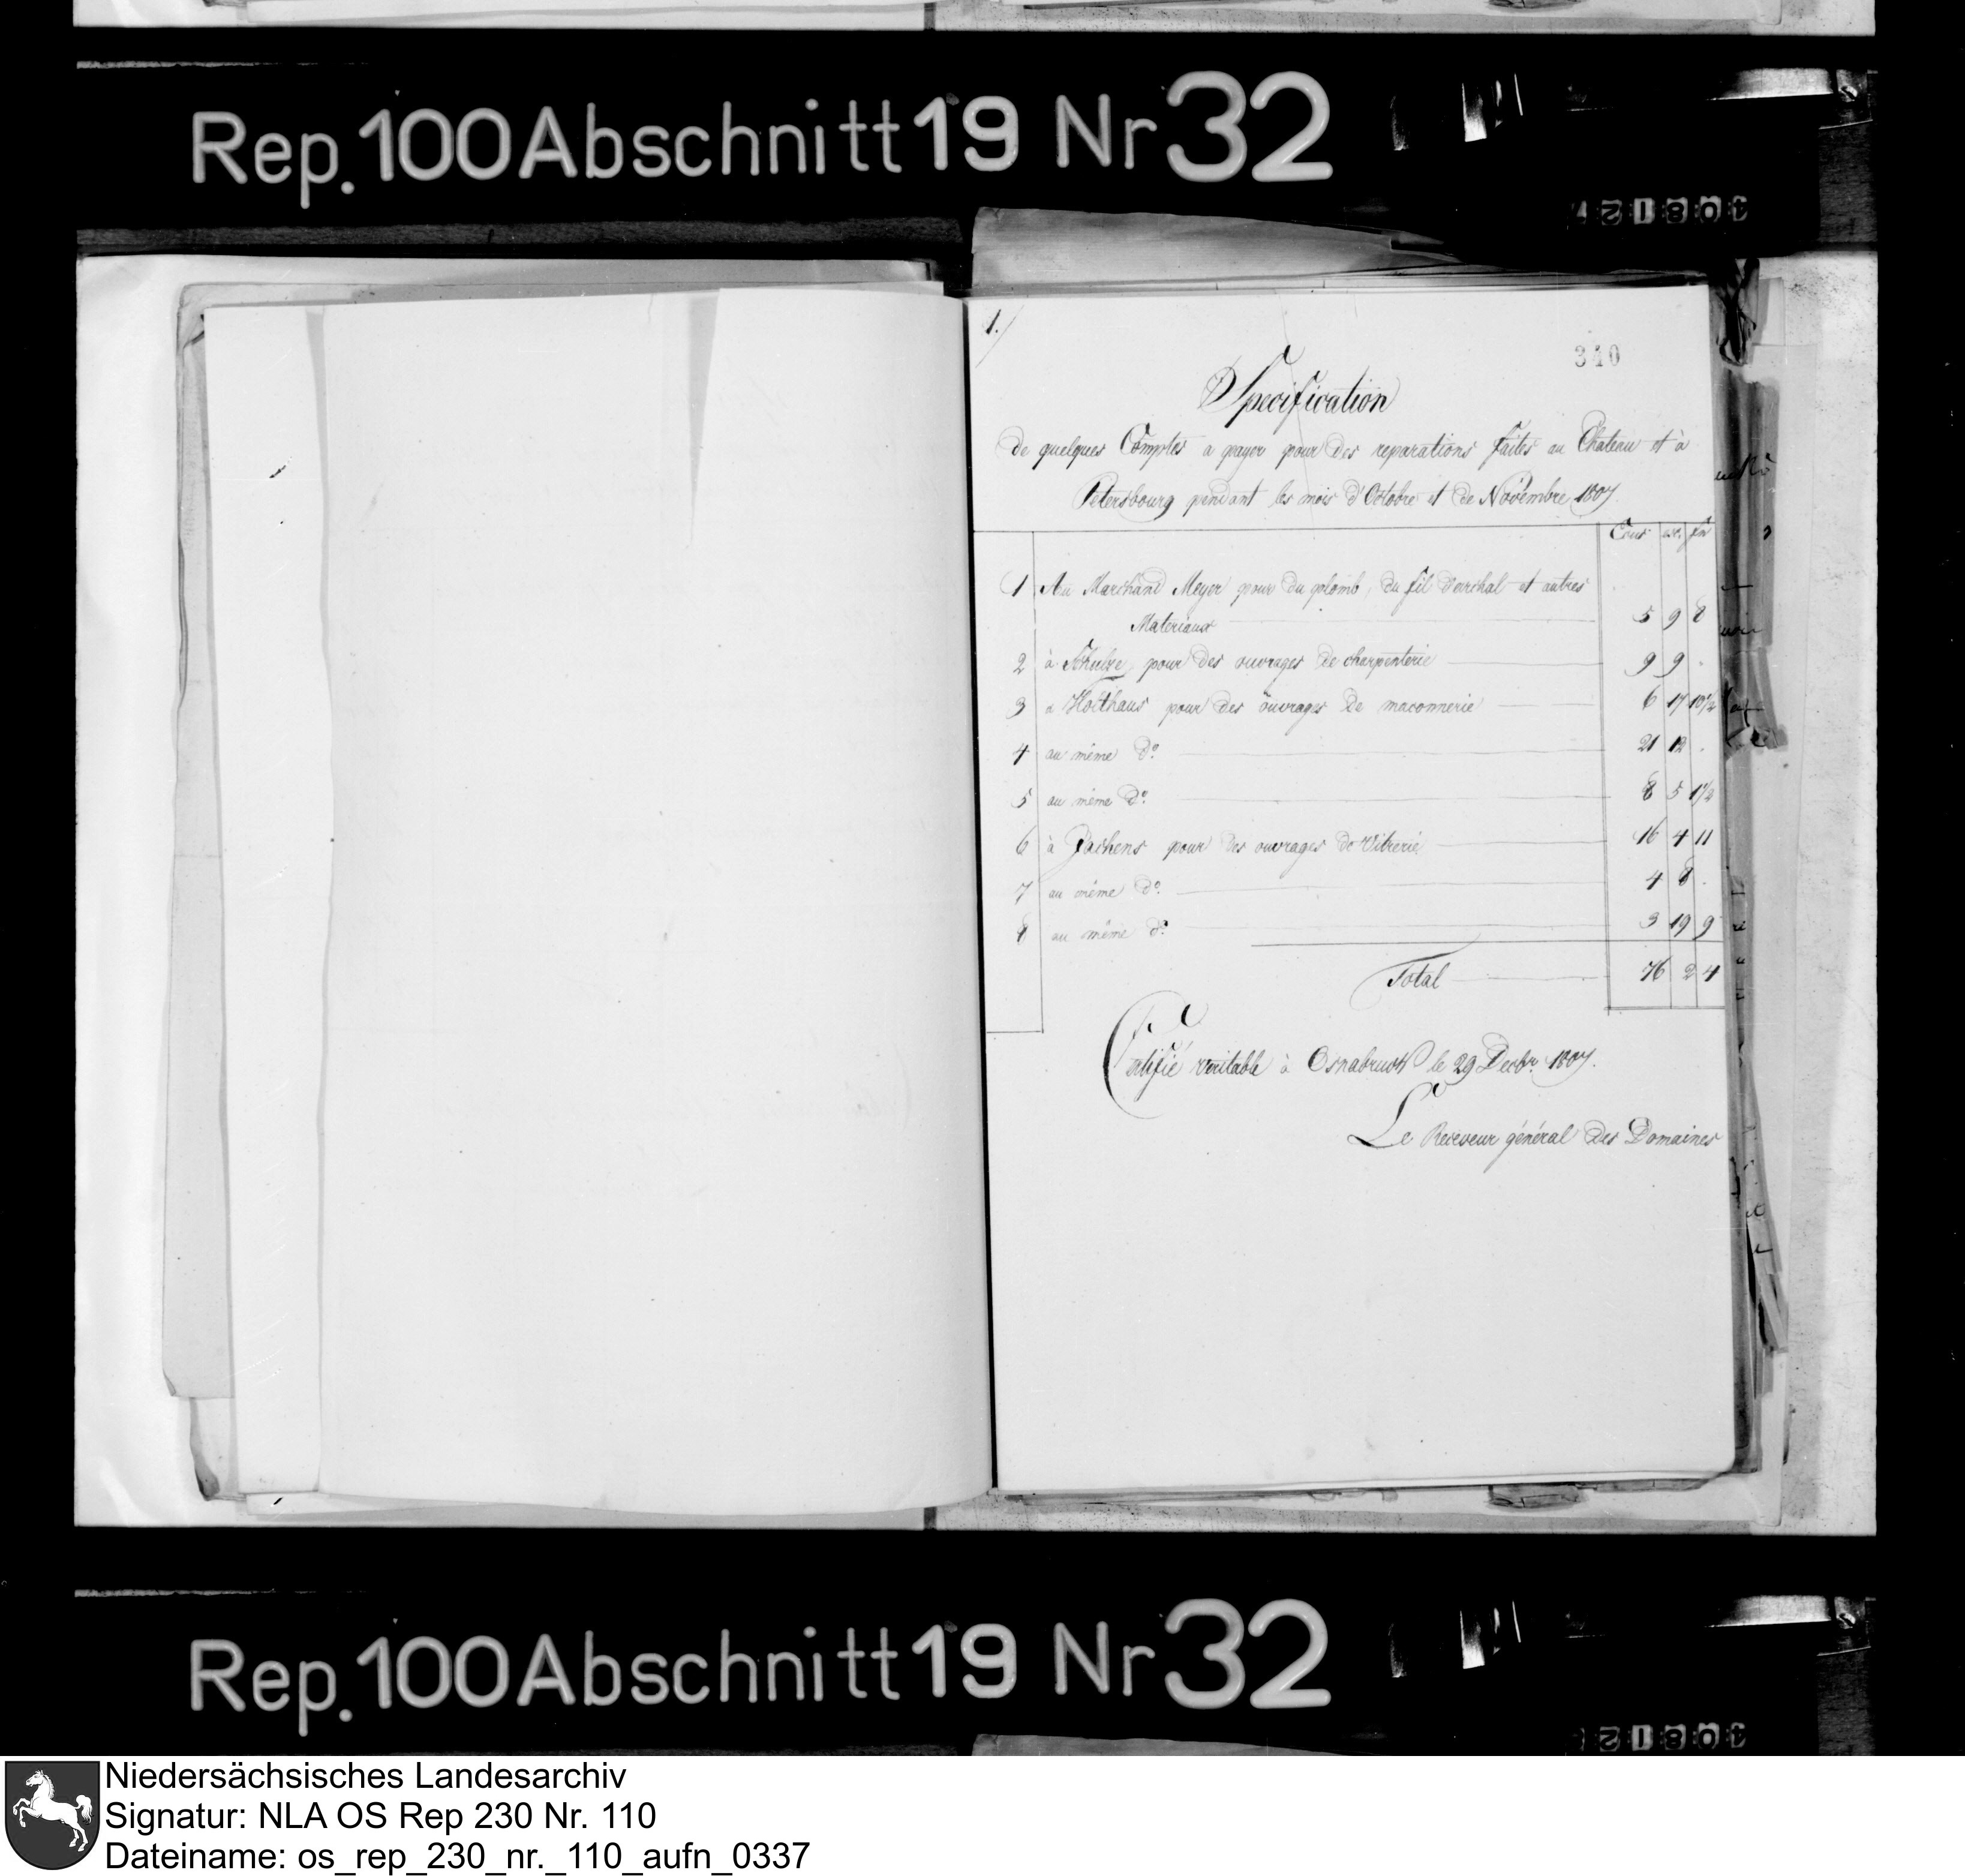 Rep. 100 Abschnitt 19 Nr 32
1.)
340
Specification
de quelques Comptes a payer pour des reparations faites au Chateau et à
Petersbourg pendant les mois d'Octobre et de Novembre 1807.
Ecus esc. fn
1 Au Marchand Meyer pour du plomb, du fil d'archal et autres
Materiaux 5 9 8
2 à Schulze pour des ouvrages de charpenterie 9 9 .
3 a Holthaus pour des ouvrages de maconnerie 6 17 10½
4 au même do. 21 12 .
5 au même do. 8 5 1½
6 à Jachens pour des ouvrages de Vitrerie 16 4 11
7 au même do. 4 8 .
8 au même do. 3 19 9
Total 76 2 4
Certifié veritable à Osnabruck le 29 Decbr. 1807.
Le Receveur général des Domaines
Rep. 100 Abschnitt 19 Nr 32
Niedersächsisches Landesarchiv
Signatur: NLA OS Rep 230 Nr. 110
Dateiname: os_rep_230_nr._110_aufn_0337